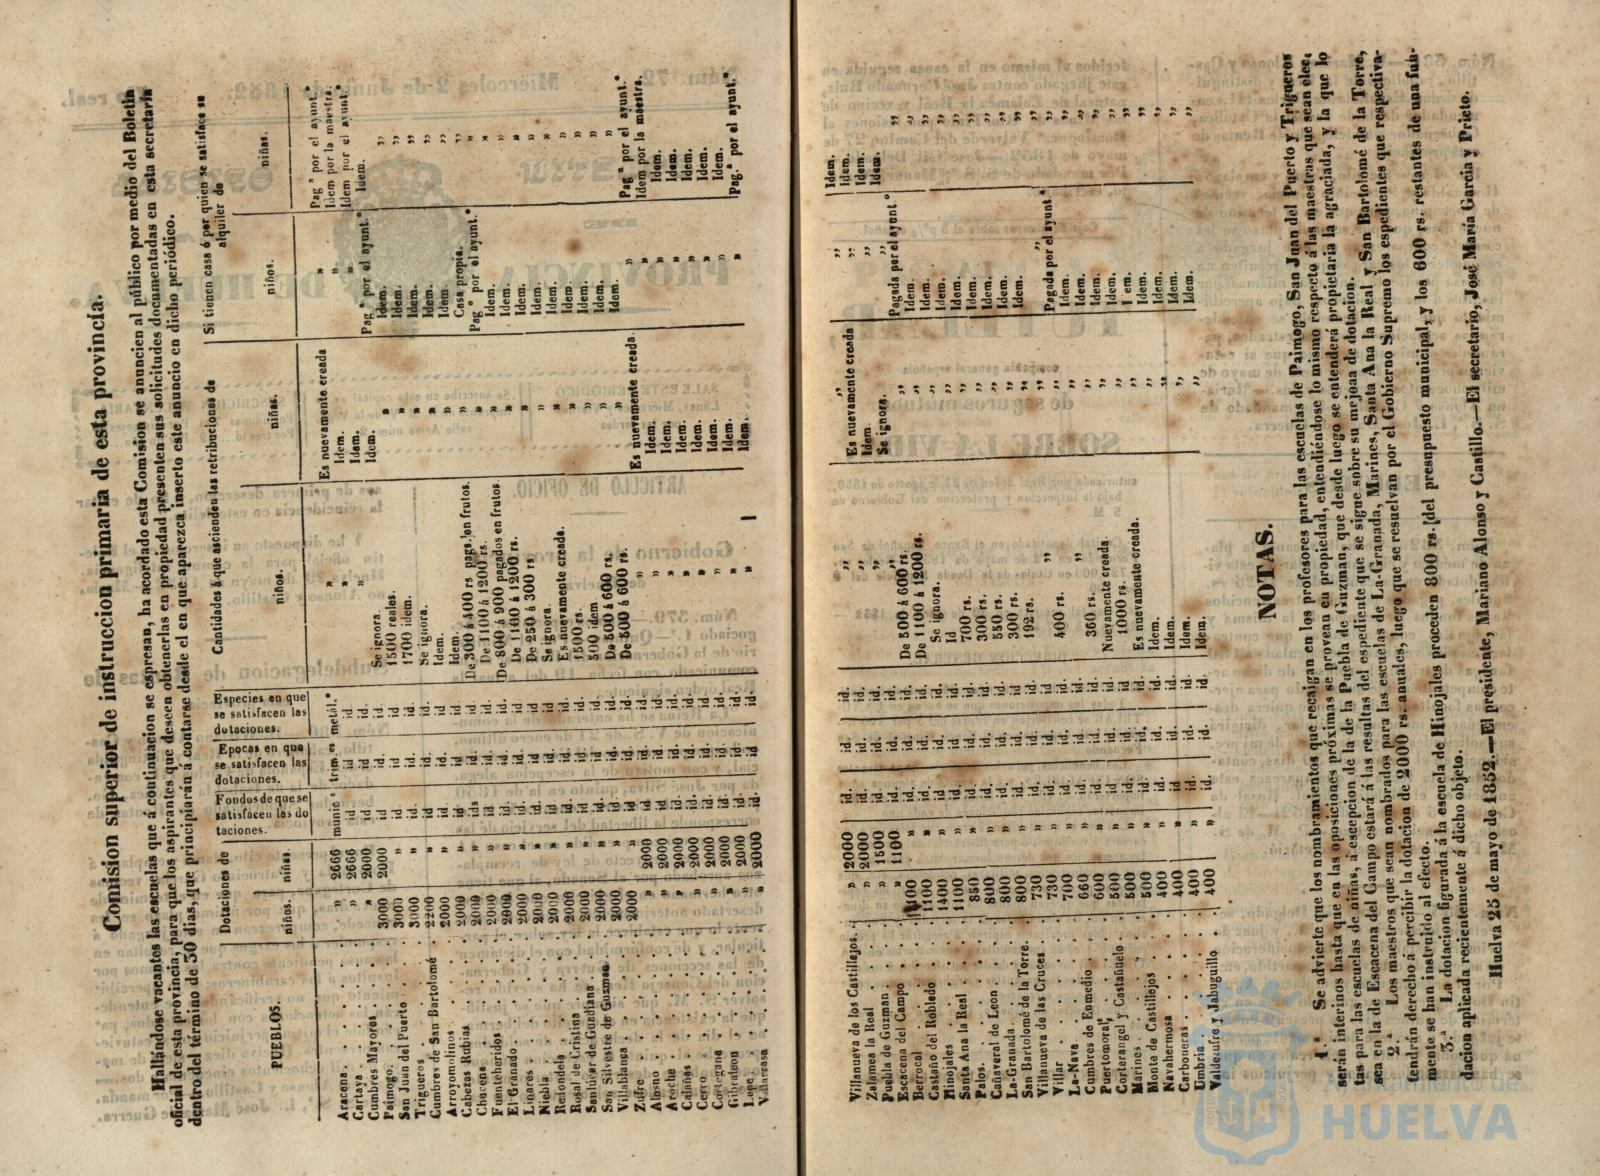 Comision superior de instruccion primaria de esta provincia.
Hallándose vacantes las escuelas que á continuacion se espresan, ha acordado esta Comision se anuncien al público por medio del Boletin
oficial de esta provincia, para que los aspirantes que deseen obtenerlas en propiedad presenten sus solicitudes documentadas en esta secretaria
dentro del término de 30 dias, que principiarán á contarse desde el en que aparezca inserto este anuncio en dicho periódico.
PUEBLOS.
Dotaciones de
niños. niñas.
Fondos de que se
satisfacen las do
taciones.
Epocas en que
se satisfacen las
dotaciones.
Especies en que
se satisfacen las
dotaciones.
Cantidades á que ascienden las retribuciones de
niños. niñas.
Si tienen casa ó por quien se satisface su
alquiler de
niños. niñas.
Aracena. » 2666 munic s trim es metál.º » Es nuevamente creada » Pag ª por el ayunt.º
Cartaya » 2666 id id id » Idem. » Idem por la maestra.
Cumbres Mayores » 2000 id id id » Idem. » Idem por el ayunt.º
Paimogo. 3000 2000 id. id. id. Se ignora. Idem. Pag ª por el ayunt.º Idem.
San Juan del Puerto 3000 » id id id. 1500 reales. » Idem. »
Trigueros 3000 » id id id. 1700 idem. » Idem. »
Cumbres de San Bartolomé 2200 » id id id. Se ignora. » Idem. »
Arroyomolinos 2000 » id id id. Idem. » Idem. »
Cabezas Rubias 2000 » id id id. Idem. » Casa propia. »
Chucena 2000 » ids id id. De 300 á 400 rs pags. en frutos » Pag ª por el ayunt.º »
Fuenteheridos 2000 » id. id. id. De 1100 á 1200 rs. » Idem. »
El Granado 2000 » id. id. id. De 800 á 900 pagados en frutos » Idem. »
Linares 2000 » id. id. id. De 1100 á 1200 rs. » Idem. »
Niebla 2000 » id. id. id. De 250 á 300 rs » Idem. »
Redondela 2000 » id. id. id. Se ignora. » Idem. »
Rosal de Cristina 2000 » id. id. id. Es nuevamente creada. » Idem. »
Sanlúcar de Guadiana 2000 » id. id. id. 1500 rs. » Idem. »
San Silvestre de Guzman 2000 » id. id. id. 500 idem » Idem. »
Villablanca 2000 » id. id. id. De 500 á 600 rs. » Idem. »
Zufre 2000 2000 id. id. id. De 500 á 600 rs. Es nuevamente creada. » Pag ª por el ayunt.º
Alosno » 2000 id. id. id. » Idem. » Idem por la maestra.
Aroche » 2000 id. id. id. » Idem. » Idem.
Calañas » 2000 id. id. id. » Idem. » Idem.
Cerro » 2000 id. id. id. » Idem. » Idem.
Cortegana » 2000 id. id. id. » Idem. » Idem.
Gibraleon » 2000 id. id. id. » Idem. » Idem.
Lepe » 2000 id. id. id. » Idem. » Idem.
Villarrasa » 2000 id. id. id. » Idem. » Pag.ª por el ayunt.º
Villanueva de los Castillejos. » 2000 id. id. id. » » » Idem.
Zalamea la Real » 2000 id. id. id. » Es nuevamente creada » Idem.
Puebla de Guzman » 1500 id. id. id. » Idem. » Idem.
Escacena del Campo » 1100 id. id. id. » Se ignora. » Idem.
Berrocal 1100 » id. id. id. De 500 á 600 rs. » Pagada por el ayunt.º »
Castaño del Robledo 1100 » id. id. id. De 1100 á 1200 rs. » Idem. »
Hinojales 1400 » id. id. id. Se ignora. » Idem. »
Santa Ana la Real 1100 » id. id. id. Id » Idem. »
Palos. 850 » id. id. id. 700 rs. » Idem. »
Cañaveral de Leon 800 » id. id. id. 300 rs. » Idem. »
La-Granada 800 » id. id. id. 550 rs. » Idem. »
San Bartolomé de la Torre. 800 » id. id. id. 300 rs. » Idem. »
Villanueva de las Cruces 730 » id. id. id. 192 rs. » » »
Villar 730 » id. id. id. » » Pagada por el ayunt.º »
La-Nava 700 » id. id. id. 400 rs. » Idem. »
Cumbres de Enmedio 660 » id. id. id. » » Idem. »
Puertomoral 600 » id. id. id. 360 rs. » Idem. »
Corterangel y Castañuelo 500 » id. id. id. Nuevamente creada. » Idem. »
Marines 500 » id. id. id. 1000 rs. » I em. »
Monte de Castillejos 500 » id. id. id. Es nuevamente creada. » Idem. »
Navahermosa 400 » id. id. id. Idem. » Idem. »
Carboneras 400 » id. id. id. Idem. » Idem. »
Umbria 400 » id. id. id. Idem. » Idem. »
Valdezufre y Jabuguillo 400 » id. id. id. Idem. » Idem. »
NOTAS.
1.ª Se advierte que los nombramientos que recaigan en los profesores para las escuelas de Paimogo, San Juan del Puerto y Trigueros
serán interinos hasta que en las oposiciones próximas se provean en propiedad, entendiéndose lo mismo respecto á las maestras que sean elec-
tas para las escuelas de niñas, á escepcion de la de la Puebla de Guzman, que desde luego se entenderá propietaria la agraciada, y la que lo
sea en la de Escacena del Campo estará á las resultas del espediente que se sigue sobre su mejoaa de dotacion.
2.ª Los maestros que sean nombrados para las escuelas de La-Granada, Marines, Santa Ana la Real y San Bartolomé de la Torre,
tendrán derecho á percibir la dotacion de 2000 rs. anuales, luego que se resuelvan por el Gobierno Supremo los espedientes que respectiva-
mente se han instruido al efecto.
3.ª La dotacion figurada á la escuela de Hinojales proceden 800 rs. del presupuesto municipal, y los 600 rs. restantes de una fun-
dacion aplicada recientemente á dicho objeto.
Huelva 25 de mayo de 1852.—El presidente, Mariano Alonso y Castillo.—El secretario, José María Garcia y Prieto.
Ayuntamiento de
HUELVA